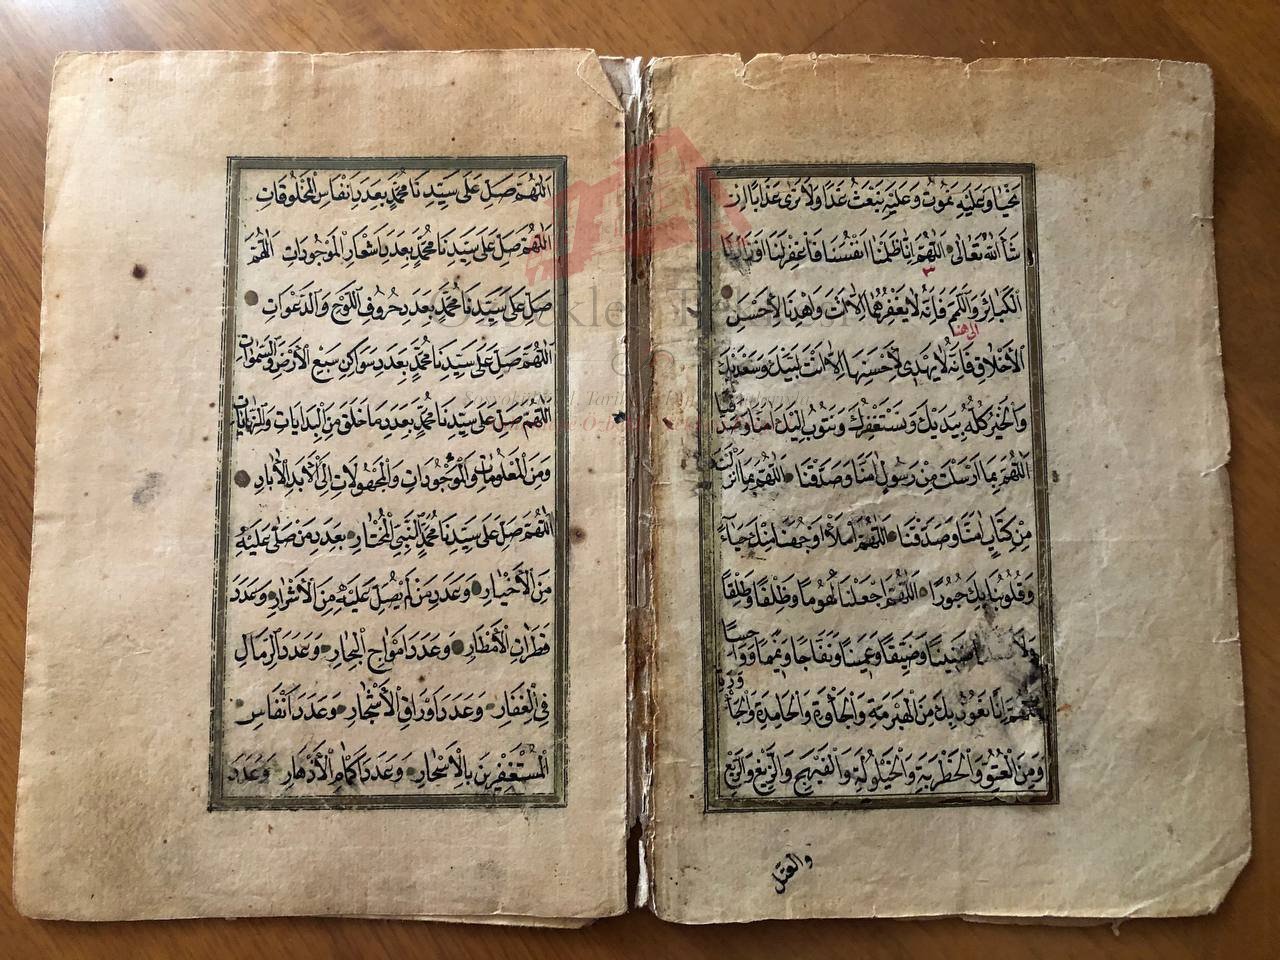 نحيا وعليه نموت وعليه نبعث غدا ولا نرى عذابا ان
شاء الله تعالى اللهم انا ظلمنا انفسنا فاغفر لنا
٣
الكبائر واللمم فانه لا يغفرهما الا انت واهدنا لاحسن
الى هنا
الاخلاق فانه لا يهدى لاحسنها الا انت لبيك وسعديك
والخير كله بيديك ونستغفرك ونتوب اليك امنا وصدقنا
اللهم بما ارسلت من رسول امنا وصدقنا اللهم بما انزلت
من كتاب امنا وصدقنا اللهم املأ اوجهنا منك حياء
وقلوبنا بك حبورا اللهم اجعلنا لهوما وظلفا وطلقا
ولا ضبيسا وضيقا وغمينا ونفاجا
اللهم انا نعوذ بك من الهبرمة والجأوة والحامدة
ومن العتو والحظربة والخيلولة والفيهج والزيغ والريغ
والعتل
اللهم صل على سيدنا محمد بعدد انفاس المخلوقات
اللهم صل على سيدنا محمد بعدد اشعار الموجودات اللهم
صل على سيدنا محمد بعدد حروف اللوح والدعوات
اللهم صل على سيدنا محمد بعدد سواكن سبع الارض والسموات
اللهم صل على سيدنا محمد بعدد ما خلق من البدايات والنهايات
ومن المعلومات والموجودات والمجهولات الى الابد الاباد
اللهم صل على سيدنا محمد النبى المختار بعدد من صلى عليه
من الاخيار وعدد من لم يصل عليه من الاشرار وعدد
قطرات الامطار وعدد امواج البحار وعدد الرمال
فى القفار وعدد اوراق الاشجار وعدد انفاس
المستغفرين بالاسحار وعدد اكمام الازهار وعدد
Özbekler Tekkesi